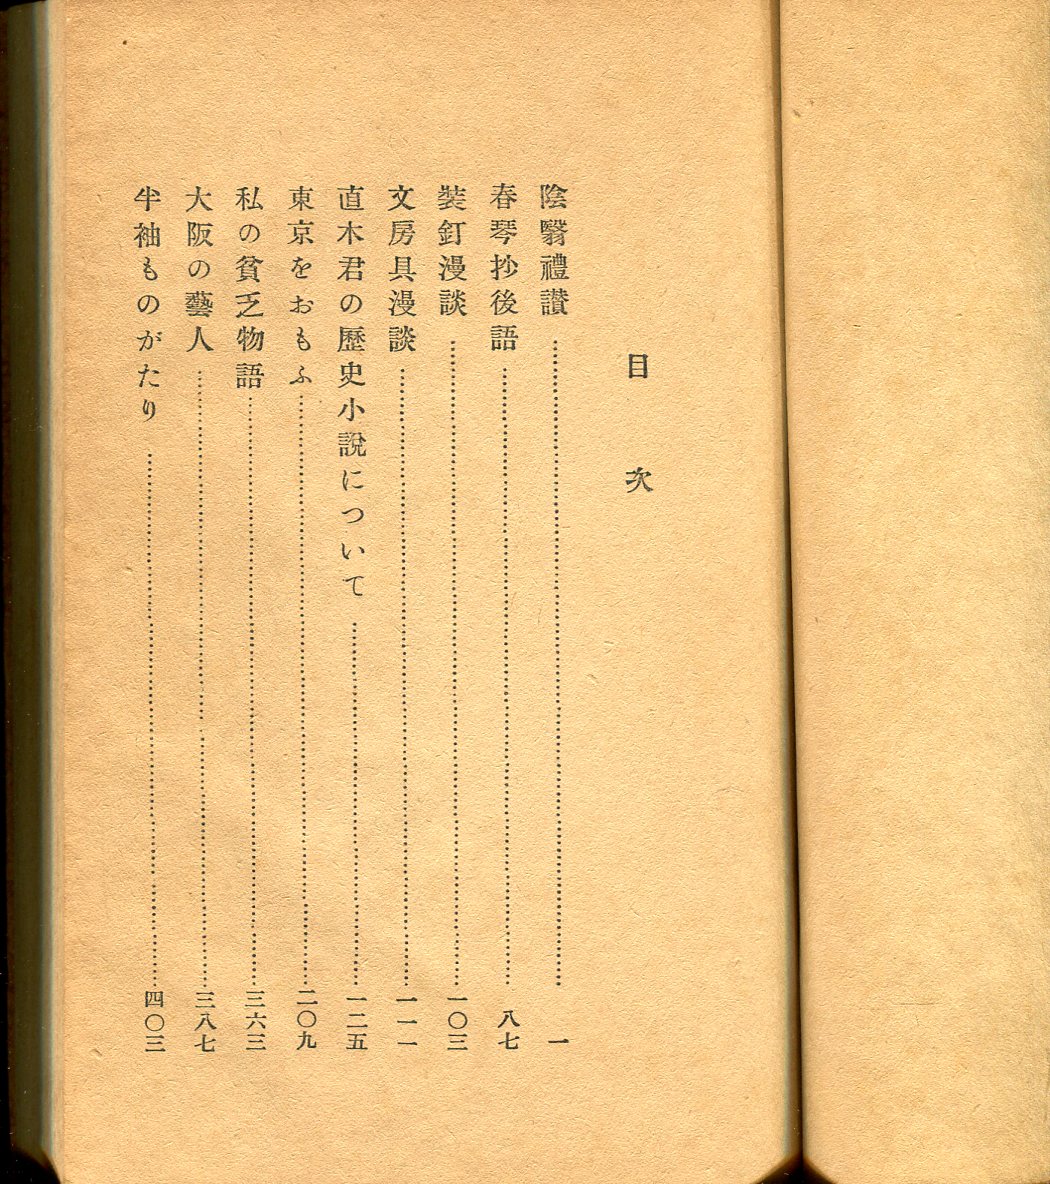 目次
陰翳禮讃……一
春琴抄後語……八七
裝釘漫談……一〇三
文房具漫談……一一一
直木君の歷史小說について……一二五
東京をおもふ……二〇九
私の貧乏物語……三六三
大阪の藝人……三八七
半袖ものがたり……四〇三